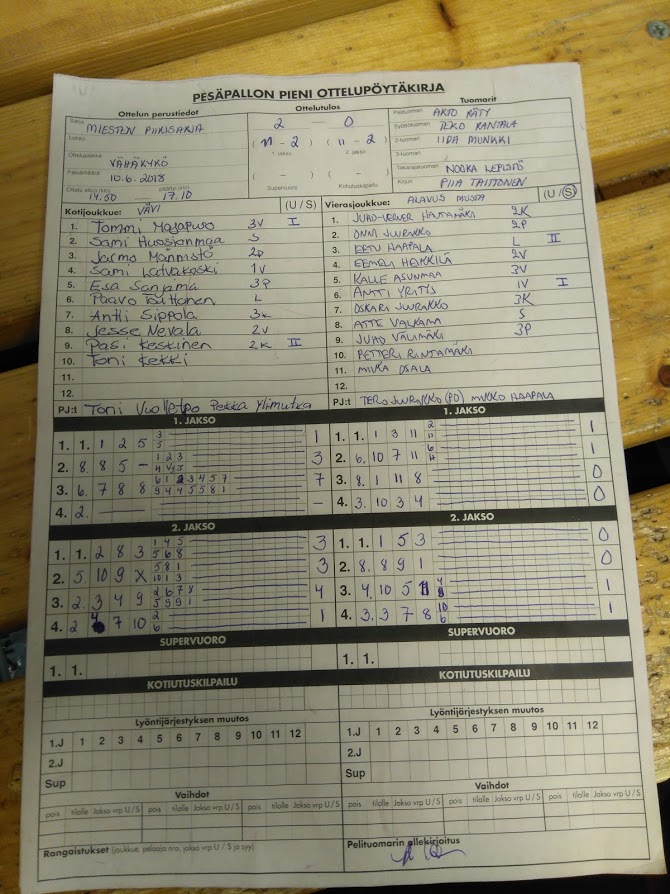 PESÄPALLON PIENI OTTELUPÖYTÄKIRJA
Ottelun perustiedot Ottelutulos Tuomarit
Sarja MIESTEN PIIRISARJA 2 0 Pelituomari ARTO RÄTY
Lohko Syöttötuomari TERO RANTALA
( 11 - 2 ) ( 11 - 2 ) 2-tuomari IIDA MUNKKI
Ottelupaikka VÄHÄKYRÖ 1. jakso 2. jakso 3-tuomari
Päivämäärä 10.6.2018 ( - ) ( - ) Takarajatuomari NOORA LEPISTÖ
Ottelu alkoi (klo) 14.50 päättyi (klo) 17.10 Supervuoro Kotiutuskilpailu Kirjuri PIIA TAITTONEN
Kotijoukkue: VÄVI (U / S) Vierasjoukkue: ALAVUS MUSTA (U / S)
1. Tommi Majapuro 3V I 1. 2K
2. Sami Huosianmaa S 2. ONNI JUURAKKO 2P
3. Jarmo Männistö 2P 3. EETU HAAPALA L II
4. Sami Latvakoski 1V 4. EEMELI HEIKKILÄ 2V
5. Esa Sanjama 3P 5. KALLE ASUNMAA 3V
6. Paavo Taittonen L 6. ANTTI YRITYS 1V I
7. Antti Sippola 3K 7. OSKARI JUURAKKO 3K
8. Jesse Nevala 2V 8. ATTE VALKAMA S
9. Pasi Keskinen 2K II 9. JUHO VÄLIMÄKI 3P
10. Toni Kekki 10. PETTERI RINTAMÄKI
11. 11. MIIKA OSALA
12. 12.
PJ:t Toni Vuolletpo Pekka Ylimutka PJ:t TERO JUURAKKO (PO) MIKKO HAAPALA
1. JAKSO 1. JAKSO
1. 1. 1 2 5 3 5 1 1. 1. 1 3 11 2 11 1
2. 8. 8 5 - 1 2 3 3 2. 6. 10 7 11 6 1
3. 6. 7 8 8 7 3. 8. 1 11 8 0
4. 2. - 4. 3. 10 3 4 0
2. JAKSO 2. JAKSO
1. 1. 2 8 3 1 4 5 5 6 8 3 1. 1. 1 5 3 0
2. 5. 10 9 X 5 8 1 10 1 3 3 2. 8. 8 9 1 0
3. 2. 3 4 9 2 6 7 8 5 9 9 1 4 3. 4. 10 5 1
4. 2 7 10 2 6 1 4. 3. 3 7 8 10 6 1
SUPERVUORO SUPERVUORO
1. 1. 1. 1.
KOTIUTUSKILPAILU KOTIUTUSKILPAILU
Lyöntijärjestyksen muutos Lyöntijärjestyksen muutos
1.J 1 2 3 4 5 6 7 8 9 10 11 12 1.J 1 2 3 4 5 6 7 8 9 10 11 12
2.J 2.J
Sup Sup
Vaihdot Vaihdot
pois tilalle Jakso vrp U / S pois tilalle Jakso vrp U / S pois tilalle Jakso vrp U / S pois tilalle Jakso vrp U / S
Rangaistukset (joukkue, pelaaja nro, jakso vrp U / S ja syy) Pelituomarin allekirjoitus